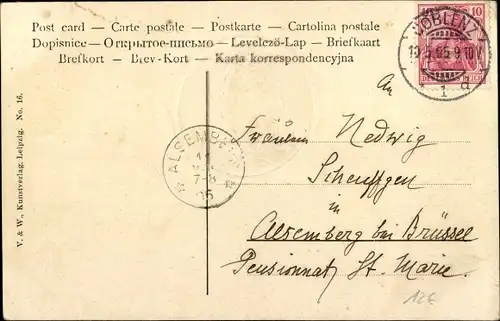 Post card — Carte postale — Postkarte — Cartolina postale
Dopisnice — Открытое-письмо — Levelező-Lap — Briefkaart
Brefkort — Brev-Kort — Karta korrespondencyjna
COBLENZ
10
DEUTSCHES REICH
* 1 d
An
ALSEMBERG
7-8
05
Fräulein Hedwig
Scheuffgen
in
Alsemberg bei Brüssel
Pensionnat St. Marie.
12€
V. & W., Kunstverlag, Leipzig. No. 16.